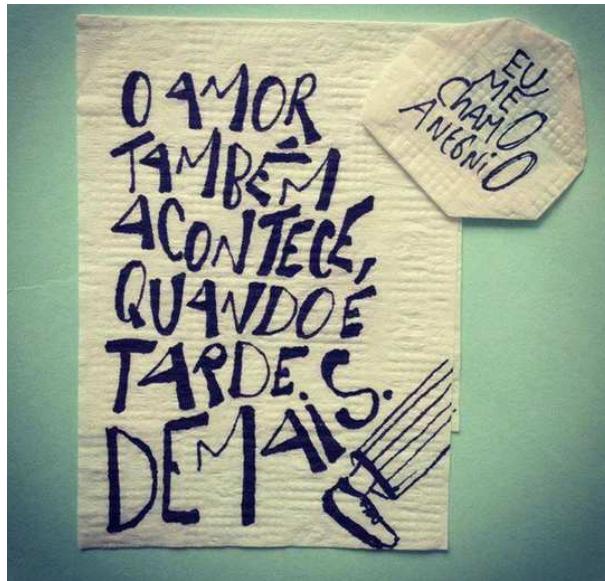 O AMOR
TAMBÉM
ACONTECE,
QUANDO É
TARDE.S.
DEMAIS.
EU
ME
CHAMO
ANTÔNIO